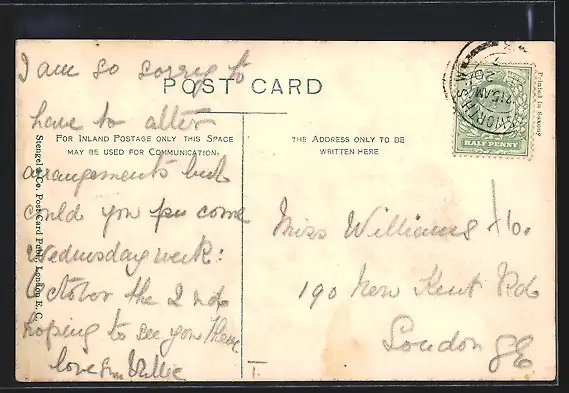 I am so sorry to
have to alter
arrangements but
could you come
Wednesday week:
October the 2 nd
hoping to see you then
love from
POST CARD
FOR INLAND POSTAGE ONLY THIS SPACE
MAY BE USED FOR COMMUNICATION.
THE ADDRESS ONLY TO BE
WRITTEN HERE
Miss Williams
190 New Kent Rd
London SE
Stengel & Co. Post Card Publ. London E. C.
Printed in Saxony
7.15 AM
HALF PENNY